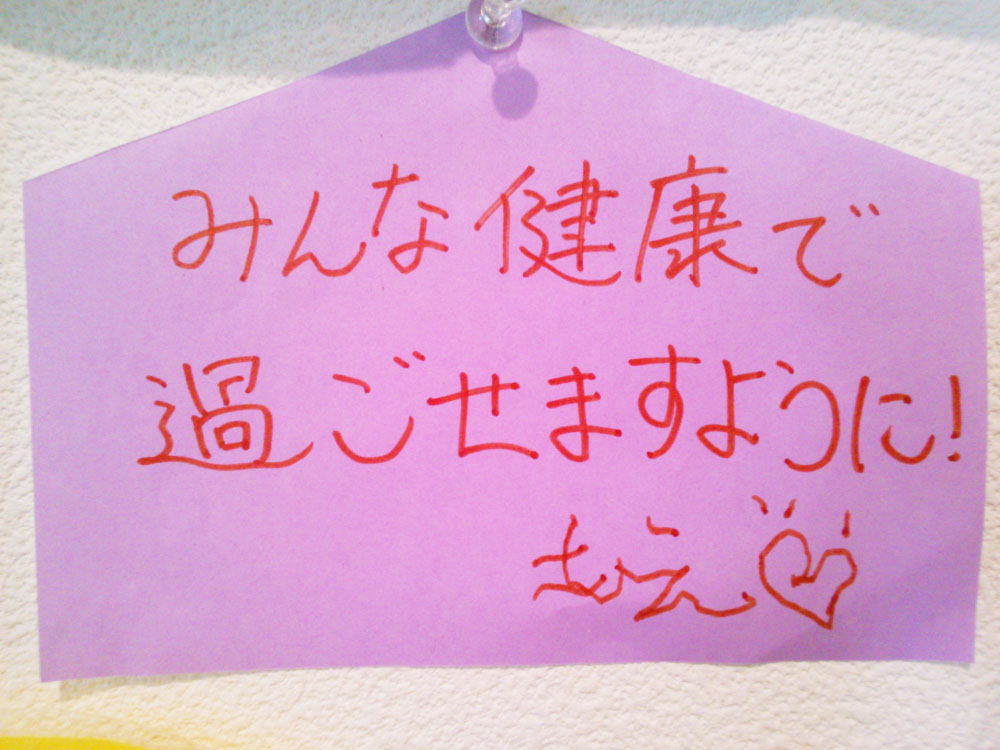 みんな健康で
過ごせますように!